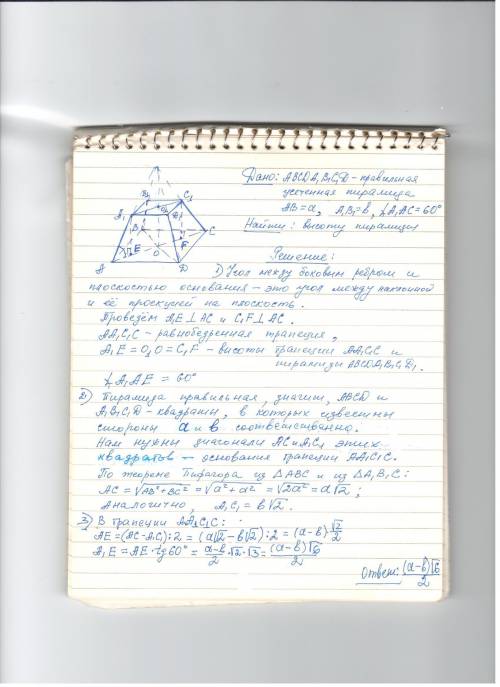 Дано: ABCDA₁B₁C₁D - правильная
усечённая пирамида
AB = a, A₁B₁ = в, ∠A₁AC = 60°
Найти: высоту пирамиды
B₁ C₁
A₁ O₁ D₁
B C
E O F
A D
Решение:
1) Угол между боковым ребром и
плоскостью основания - это угол между наклонной
и её проекцией на плоскость.
Проведём A₁E ⊥ AC и C₁F ⊥ AC.
AA₁C₁C - равнобедренная трапеция,
A₁E = O₁O = C₁F - высоты трапеции AA₁C₁C и
пирамиды ABCDA₁B₁C₁D₁.
∠A₁AE = 60°
2) Пирамида правильная, значит, ABCD и
A₁B₁C₁D - квадраты, в которых известны
стороны a и в соответственно.
Нам нужны диагонали AC и A₁C₁ этих
квадратов - основания трапеции AA₁C₁C.
По теореме Пифагора из △ABC и из △A₁B₁C:
AC = √AB² + BC² = √a² + a² = √2a² = a√2;
Аналогично, A₁C₁ = в√2.
3) В трапеции AA₁C₁C:
AE = (AC - A₁C₁):2 = (a√2 - в√2):2 = (a-в)√2/2
A₁E = AE·tg60° = (a-в)/2·√2·√3 = (a-в)√6/2
Ответ: (a-в)√6/2